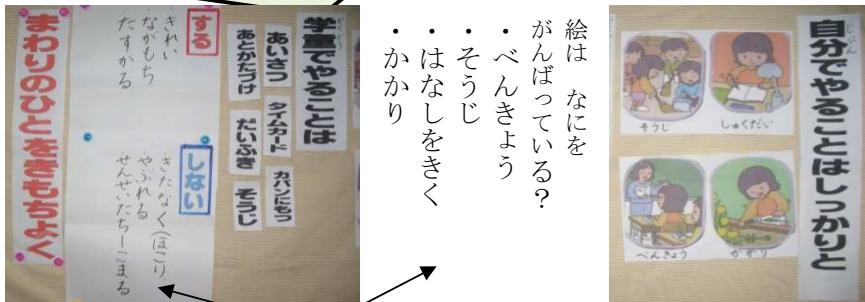 自分でやることはしっかりと
じぶん
しゅくだい
そうじ
かかり
べんきょう
絵は なにを
がんばっている?
・べんきょう
・そうじ
・はなしをきく
・かかり
学童でやることは
がくどう
あいさつ
タイムカード
カバンにもつ
あとかたづけ
だいふき
そうじ
する
きれい
ながもち
たすかる
しない
きたなく(ほこり)
やぶれる
せんせいたちーこまる
まわりのひとをきもちよく